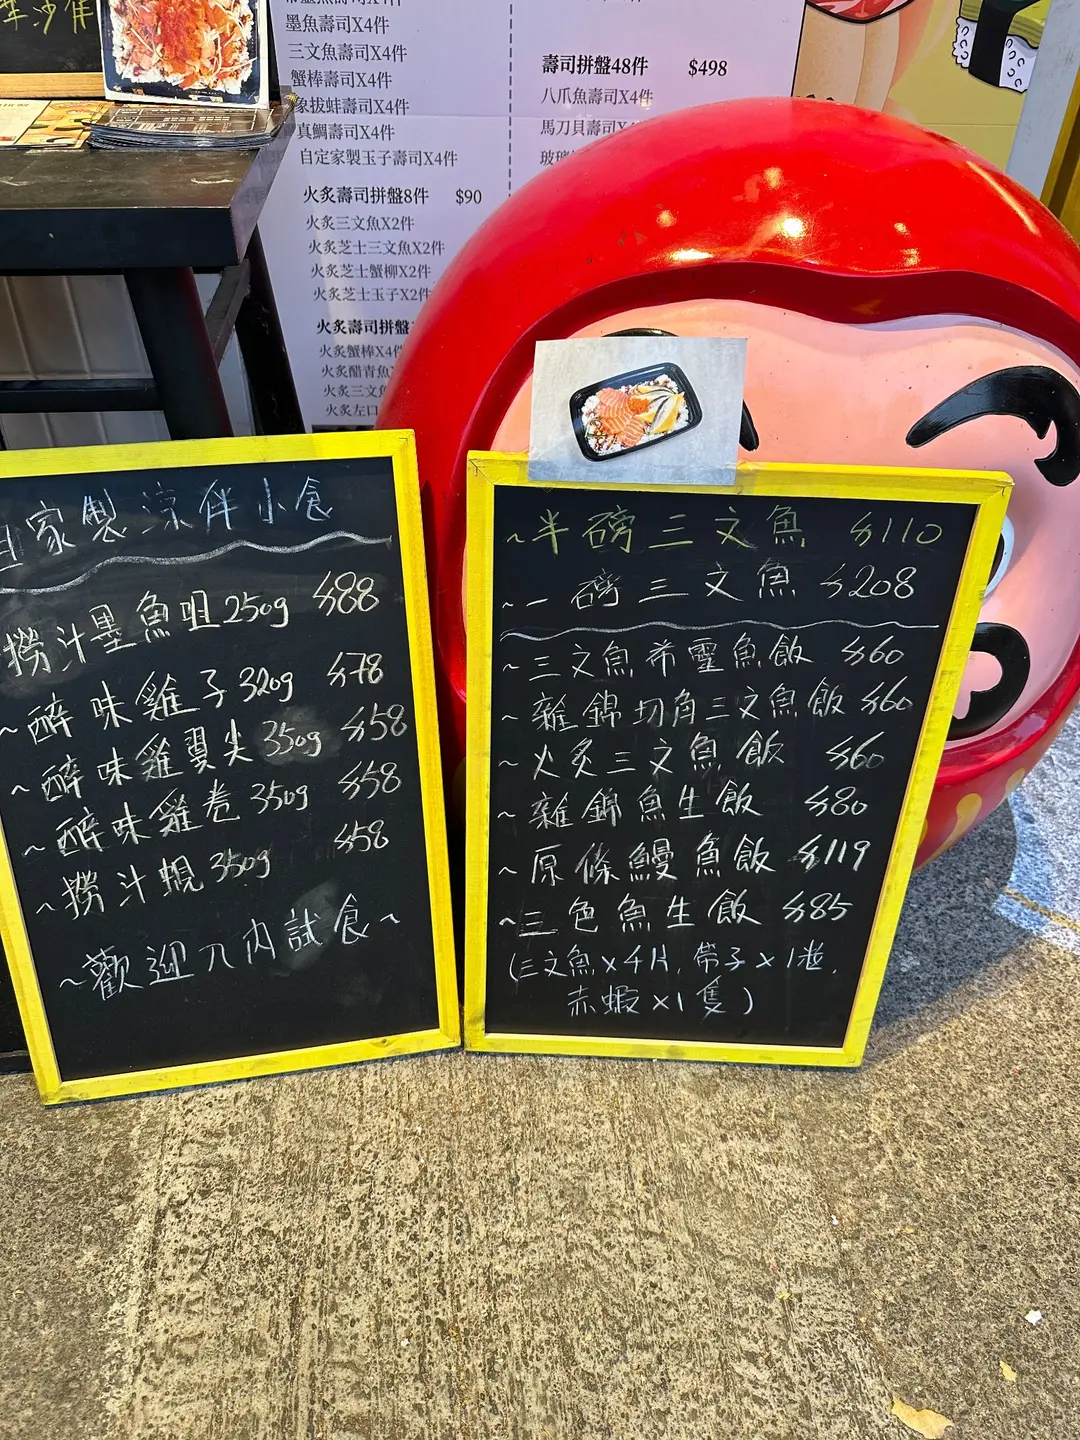 墨魚壽司X4件
三文魚壽司X4件
蟹棒壽司X4件
象拔蚌壽司X4件
真鯛壽司X4件
自定家製玉子壽司X4件
火炙壽司拼盤8件 $90
火炙三文魚X2件
火炙芝士三文魚X2件
火炙芝士蟹柳X2件
火炙芝士玉子X2件
火炙壽司拼盤
火炙蟹棒X4
火炙醋青魚
火炙三文
火炙左口
壽司拼盤48件 $498
八爪魚壽司X4件
馬刀貝壽司X4
自家製涼伴小食
撈汁墨魚咀250g $88
~醉味雞子320g $78
~醉味雞翼尖350g $58
~醉味雞卷350g $58
~撈汁蜆350g $58
~歡迎入內試食~
~半磅三文魚 $110
~一磅三文魚 $208
~三文魚希靈魚飯 $60
~雜錦切角三文魚飯 $60
~火炙三文魚飯 $60
~雜錦魚生飯 $80
~原條鰻魚飯 $119
~三色魚生飯 $85
(三文魚x4片,帶子x1粒,
赤蝦x1隻)